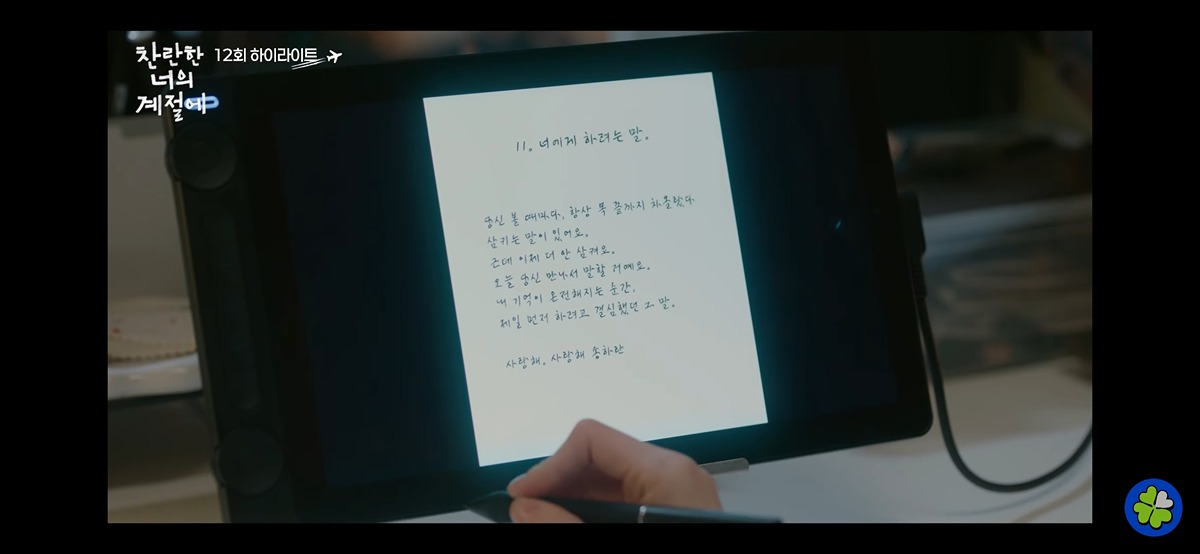 찬란한
너의
계절에
12회 하이라이트
11. 너에게 하려는 말.
당신 볼 때마다, 항상 목 끝까지 차올랐다
삼키는 말이 있어요.
근데 이제 더 안 삼켜요.
오늘 당신 만나서 말할 거예요.
내 기억이 온전해지는 순간,
제일 먼저 하려고 결심했던 그 말.
사랑해. 사랑해 송하란